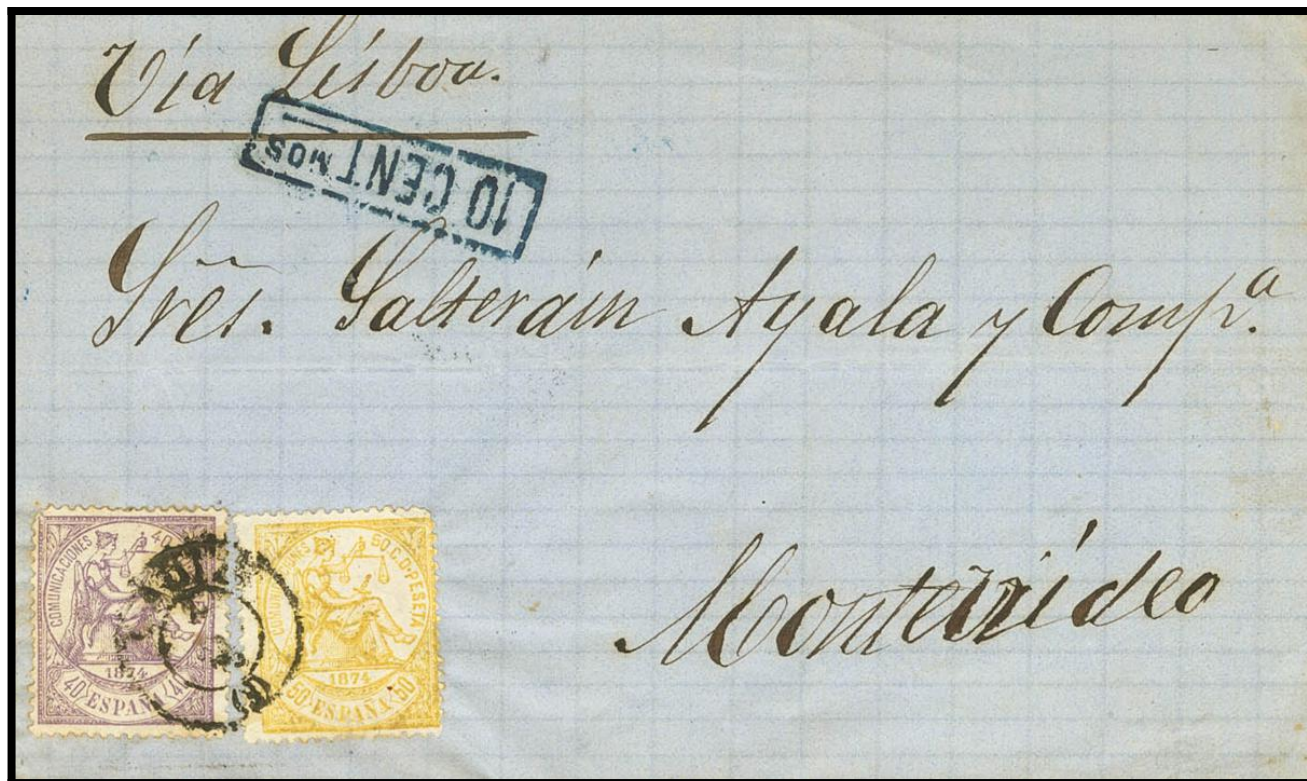 Via Lisboa.
10 CENTMOS
Sres. Salteráin Ayala y Compª.
Montevideo
COMUNICACIONES 40
1874
40 ESPAÑA 40
50 C. D PESETA
1874
50 ESPAÑA 50